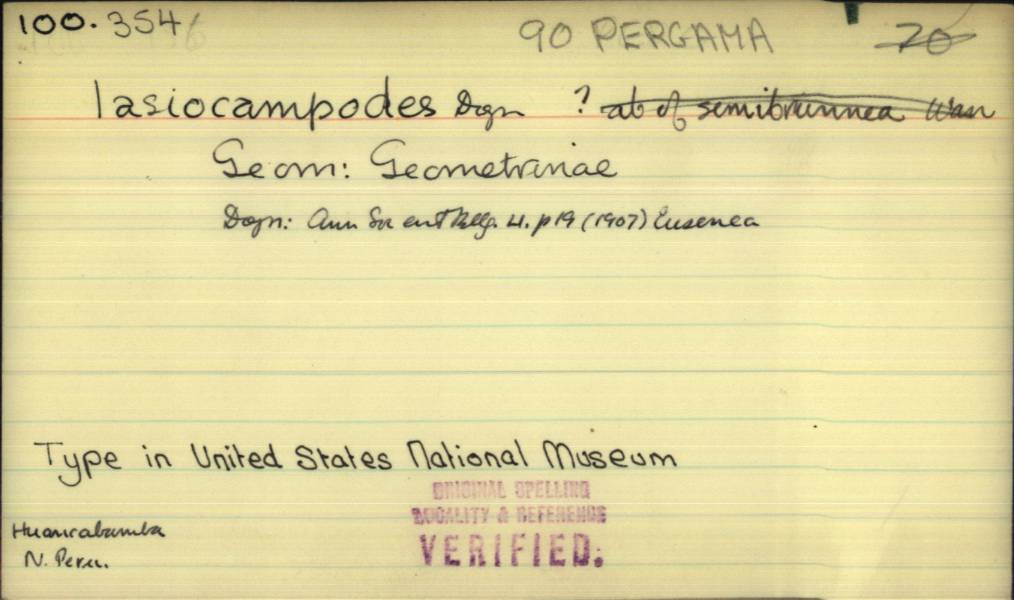 100. 354
90 PERGAMA 70
lasiocampodes Dogn ? ab of semibrunnea Warr
Geom: Geometrinae
Dogn: Ann Soc ent Belg. 51. p 19 (1907) Eusenea
Type in United States National Museum
ORIGINAL SPELLING
LOCALITY & REFERENCE
VERIFIED.
Huancabamba
N. Peru.